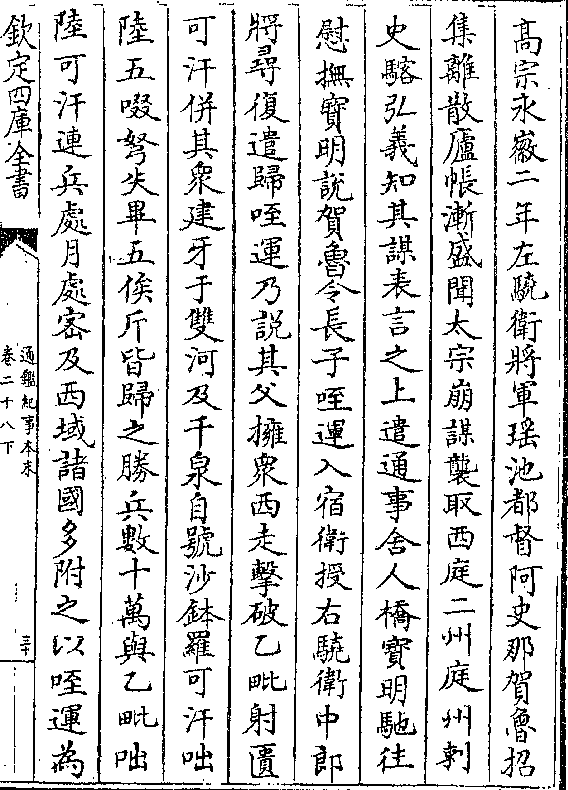 高宗永徽二年左驍衛將軍瑶池都督阿史那賀魯招
集離散廬帳漸盛聞太宗崩謀襲取西庭二州庭州刺
史駱弘義知其謀表言之上遣通事舍人橋寳明馳往
慰撫寳明說賀魯令長子咥運入宿衛授右驍衛中郎
將尋復遣歸咥運乃說其父擁衆西走擊破乙毗射匱
可汗併其衆建牙于雙河及千泉自號沙鉢羅可汗咄
陸五啜弩失畢五俟斤皆歸之勝兵數十萬與乙毗咄
陸可汗連兵處月處密及西域諸國多附之以咥運為
欽定四庫全書
通鑑紀事本末
卷二十八下
三十